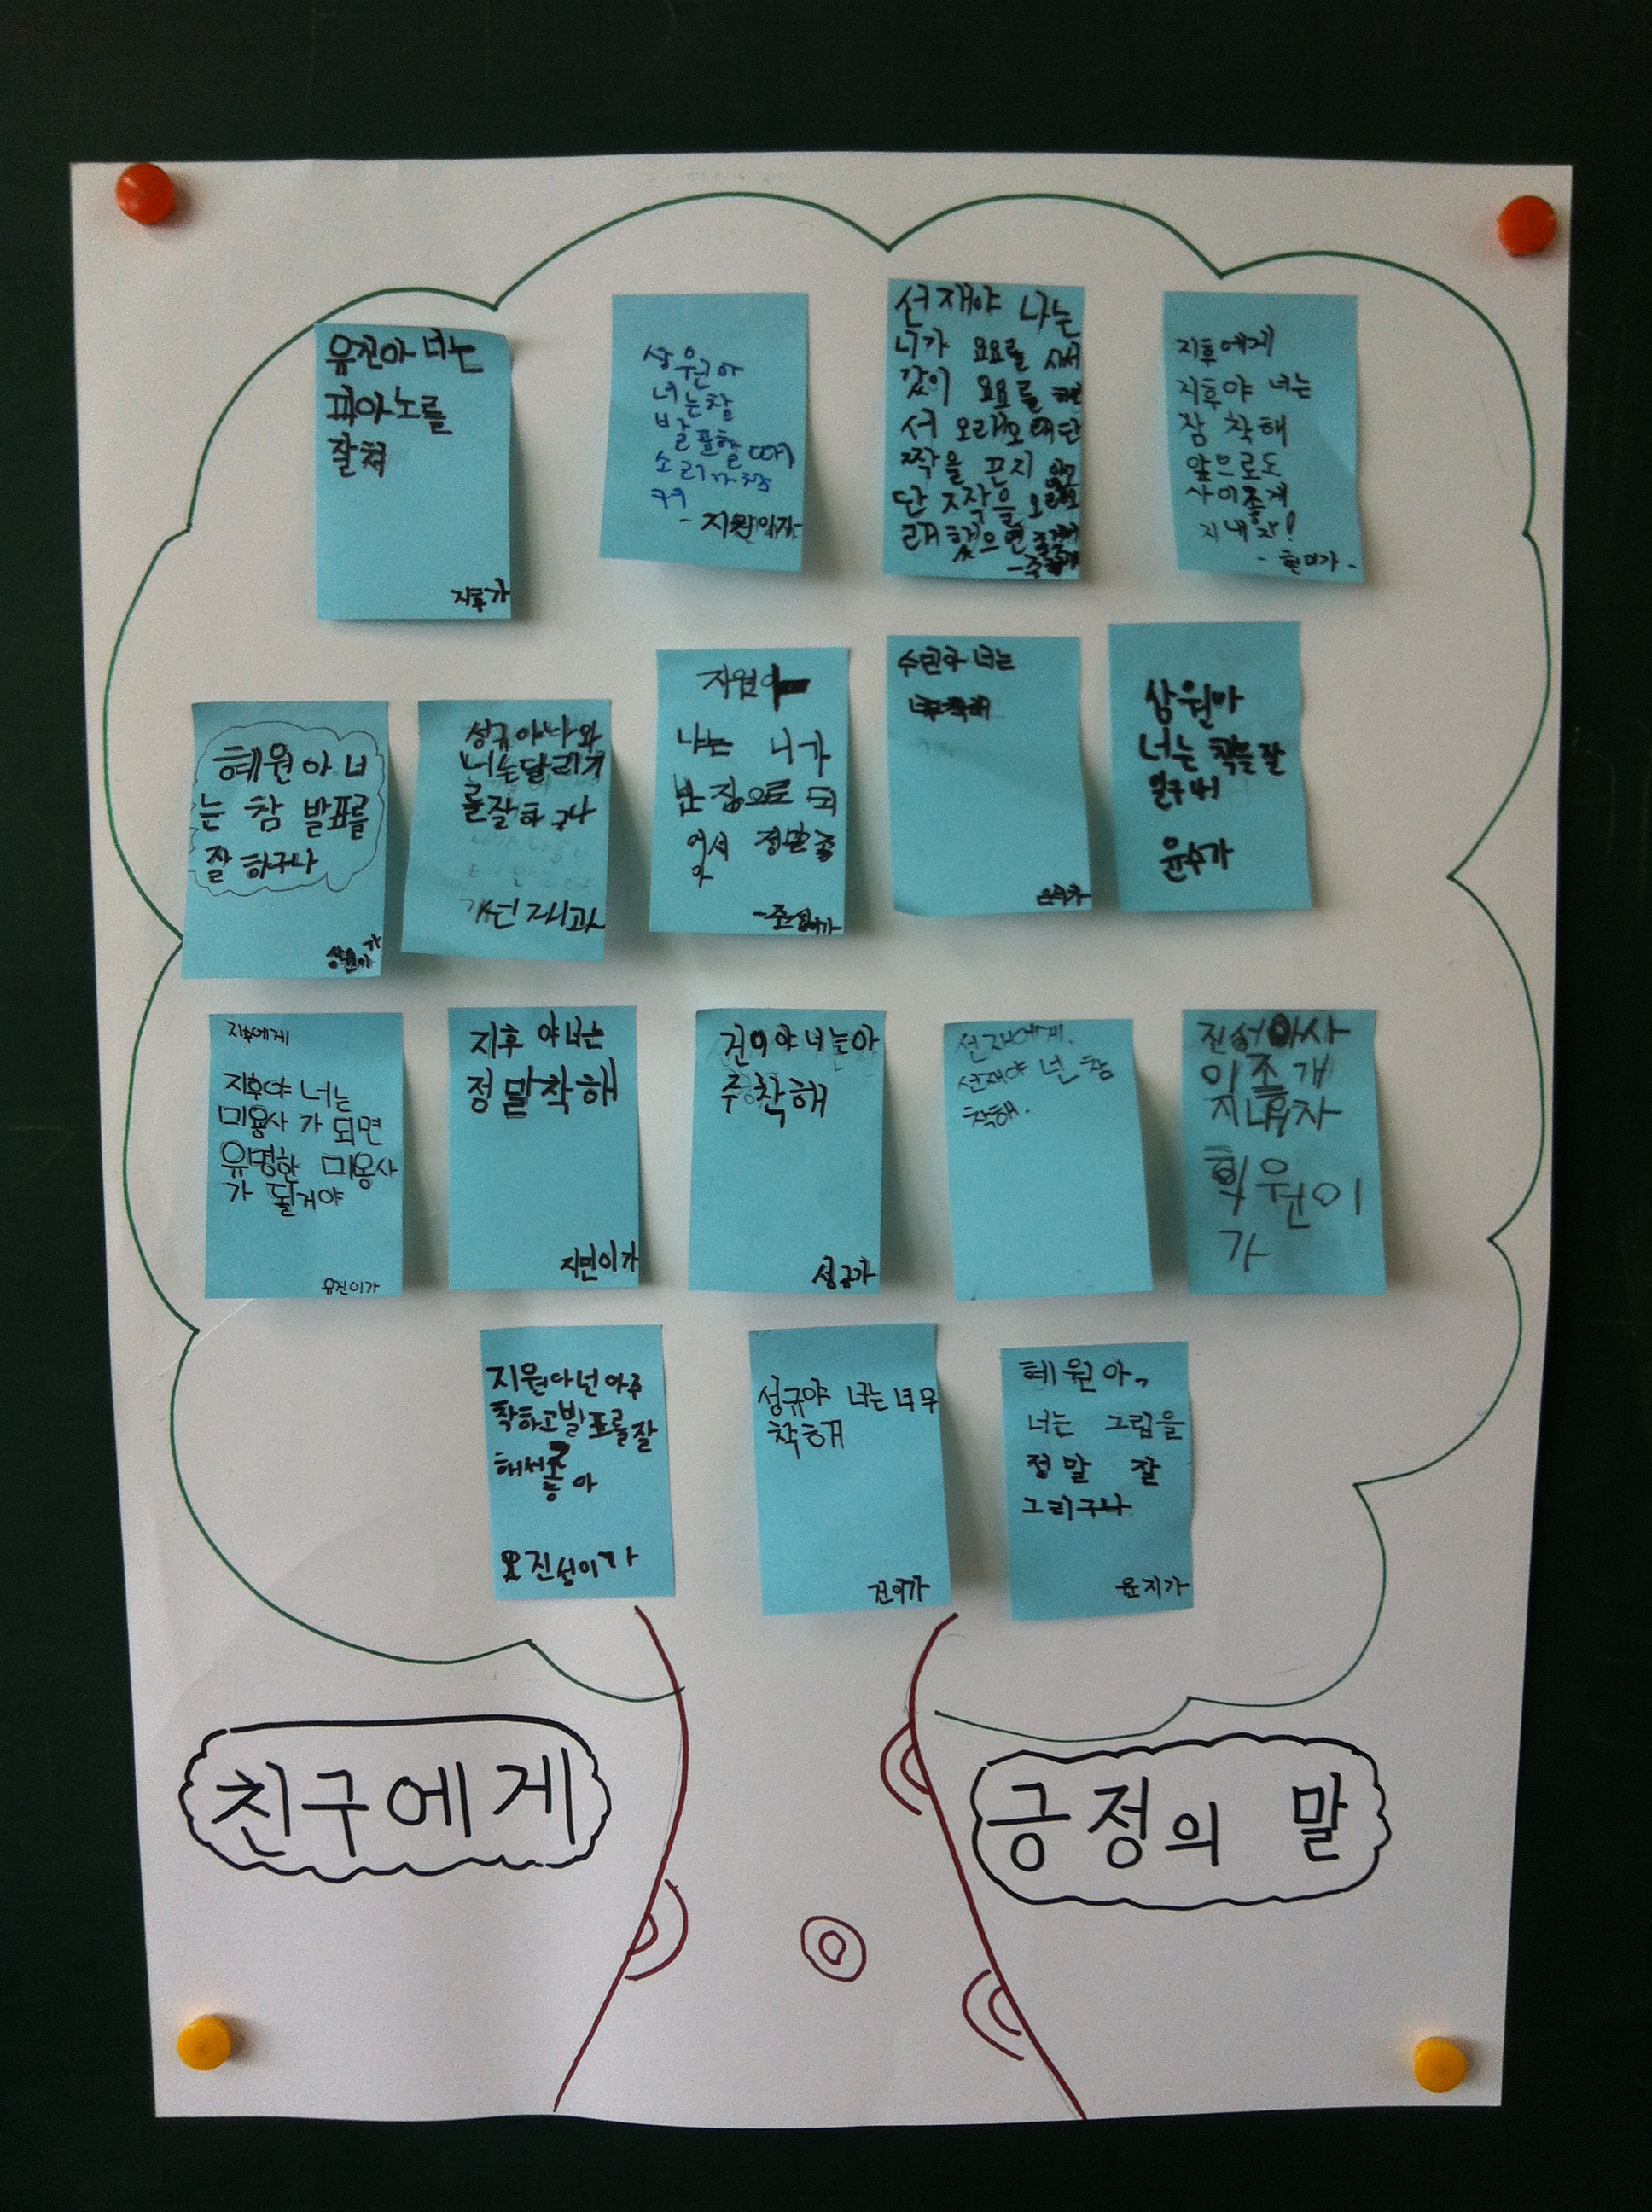 유진아 너는
피아노를
잘쳐
지후가
상원아
너는참
발표할때
소리가참
커
선재야 나는
니가 요요를 사서
같이 요요를
서 오래오래단
짝을 끈지 않고
단 짝을 오래오
래했으면
지후에게
지후야 너는
참 착해
앞으로도
사이좋게
지내자!
- 현미가 -
혜원아 너
는 참 발표를
잘 하구나
상원이가
성규야나와
너는달리기
를잘하구나
지원아
나는 니가
반장으로 되
어서 정말좋
아
수민아 너는
상원아
너는 책을잘
윤수가
지후에게
지후야 너는
미용사 가 되면
유명한 미용사
가 될거야
유진이가
지후 야너는
정말착해
지민이가
건이야너는아
주착해
성규가
선재에게.
선재야 넌 참
착해.
진성아사
이좋개
지내자
혁원이
가
지원아넌아주
착하고발표를잘
해서좋
아
진성이가
성규야 너는너무
착해
건이가
혜원아,
너는 그림을
정말 잘
그리구나
윤지가
친구에게
긍정의 말